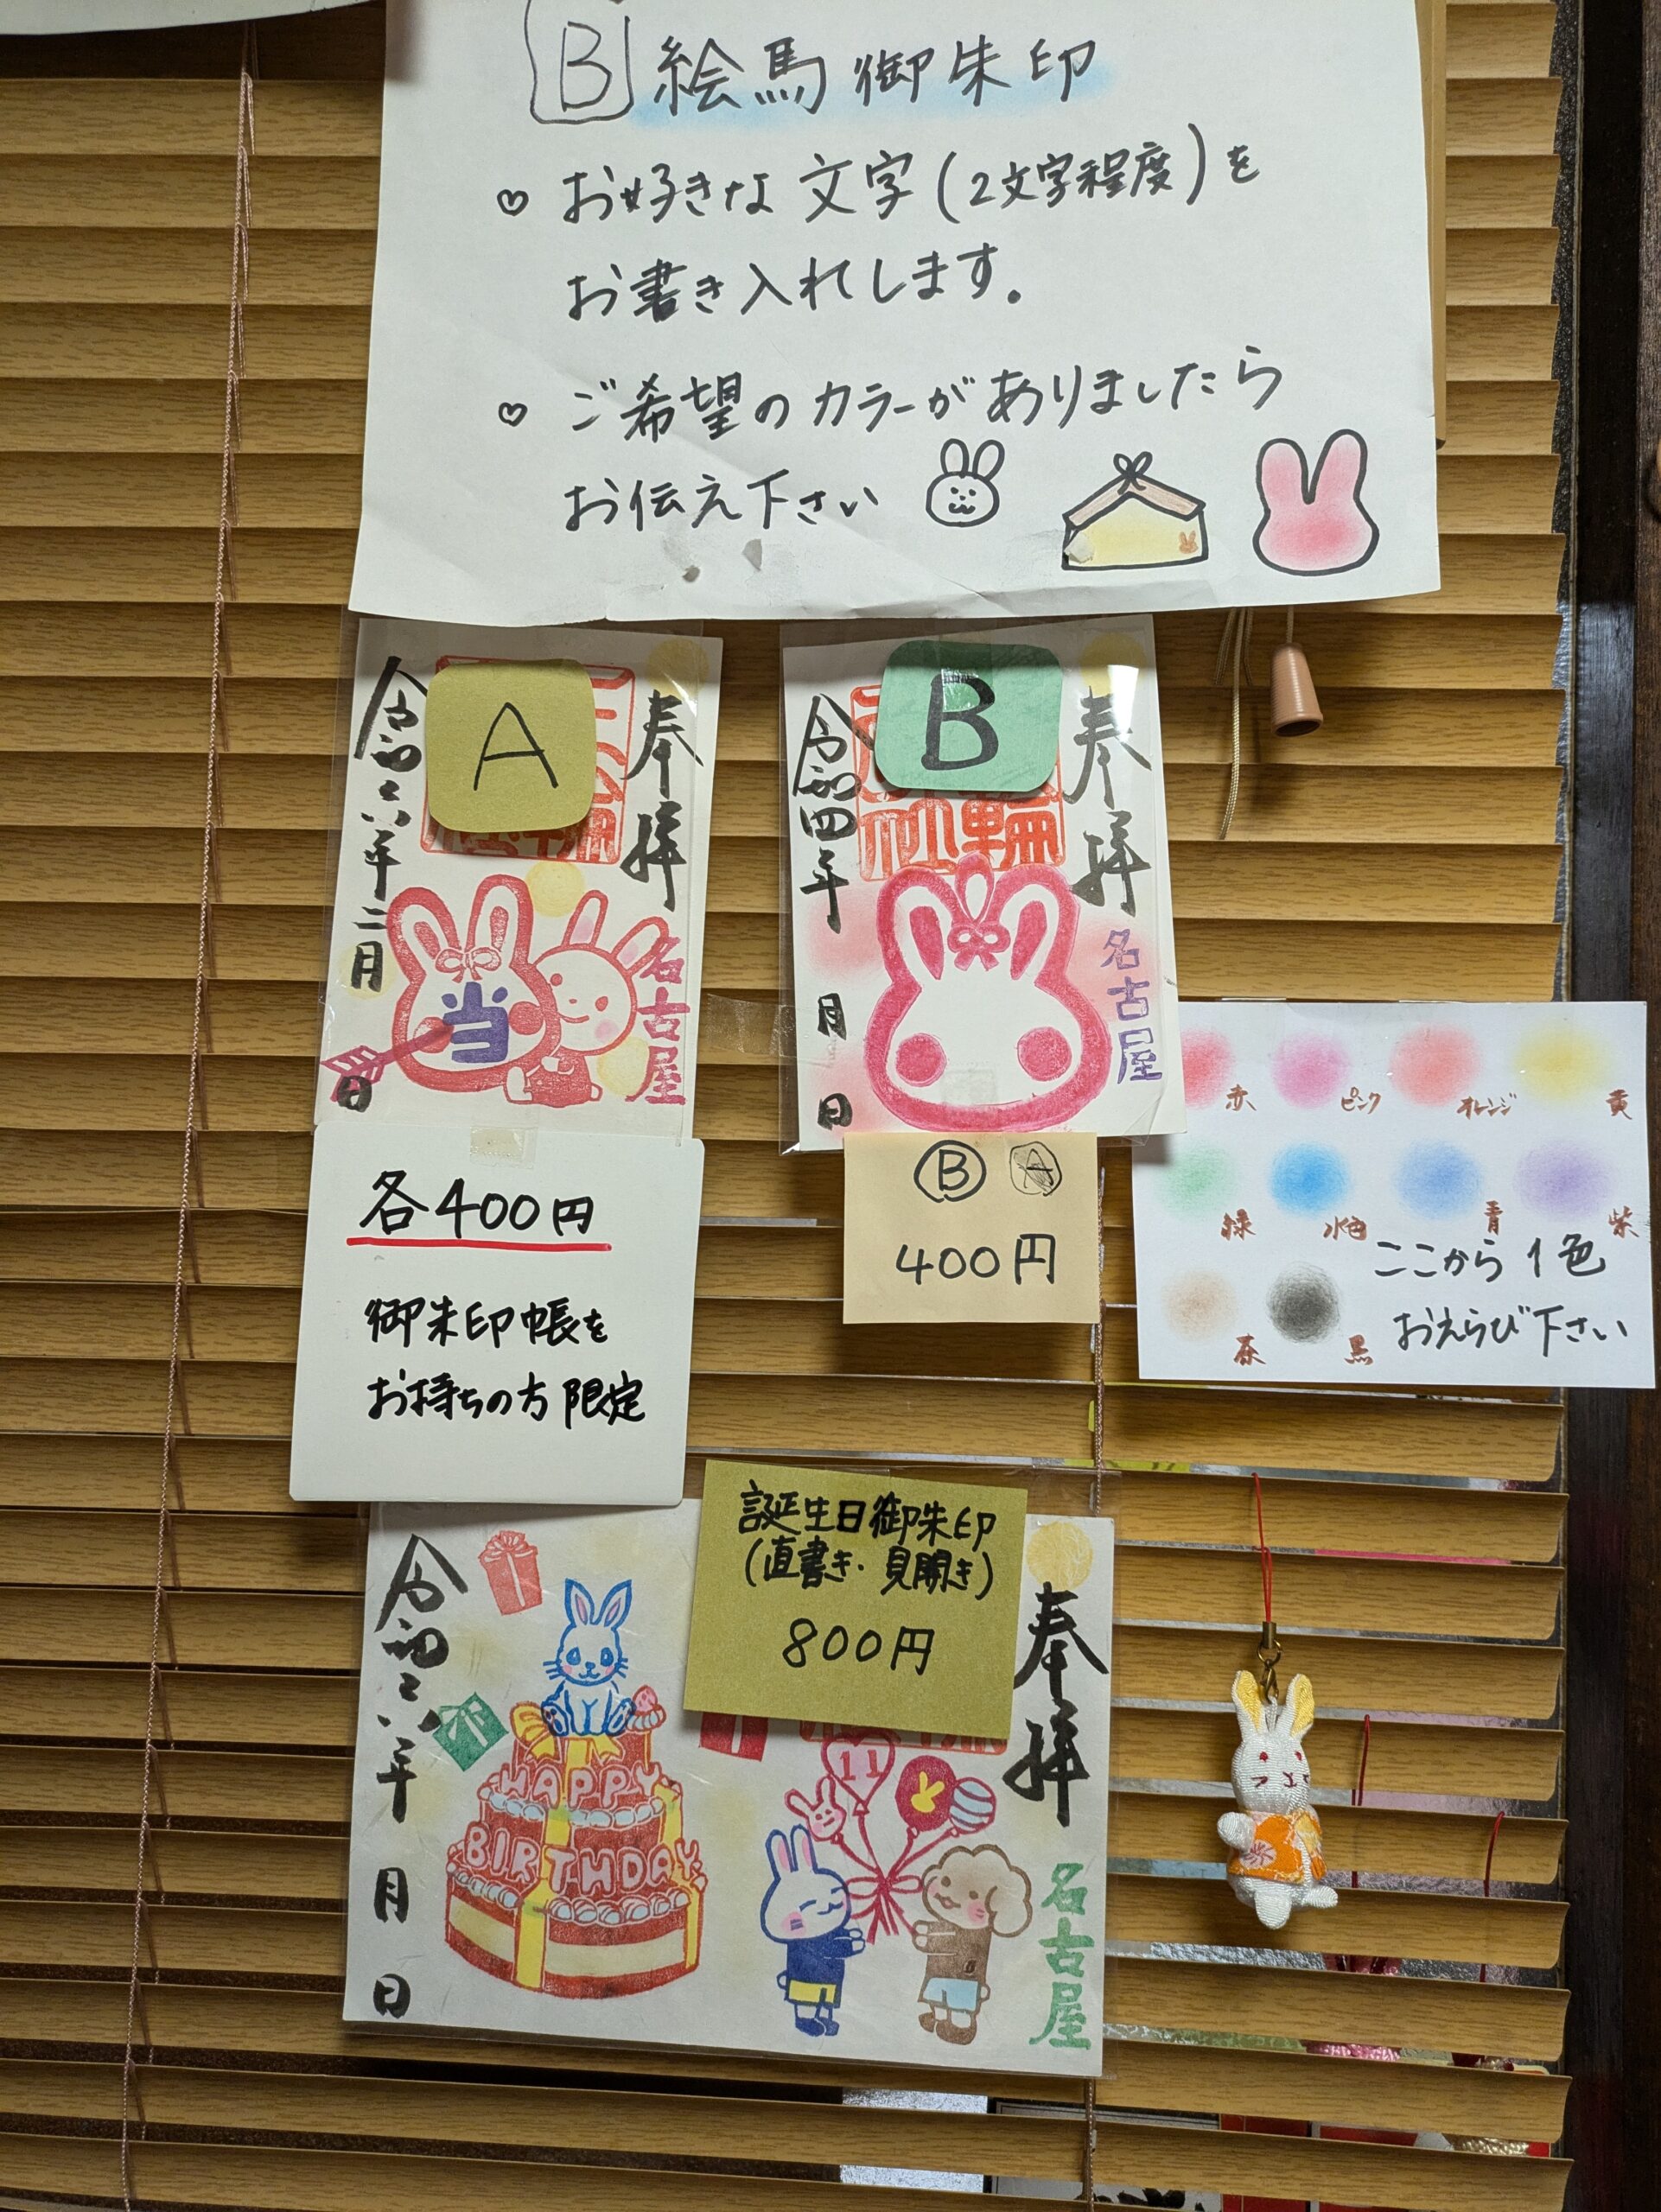 B 絵馬御朱印
♡ お好きな文字(2文字程度)を
お書き入れします。
♡ ご希望のカラーがありましたら
お伝え下さい
A
奉拝
名古屋
当
令和六年二月
日
B
奉拝
名古屋
令和四年
月
日
各400円
御朱印帳を
お持ちの方限定
B A
400円
赤 ピンク オレンジ 黄
緑 水色 青 紫
茶 黒
ここから1色
おえらび下さい
誕生日御朱印
(直書き・見開き)
800円
奉拝
名古屋
11
HAPPY
BIRTHDAY
令和六年
月
日